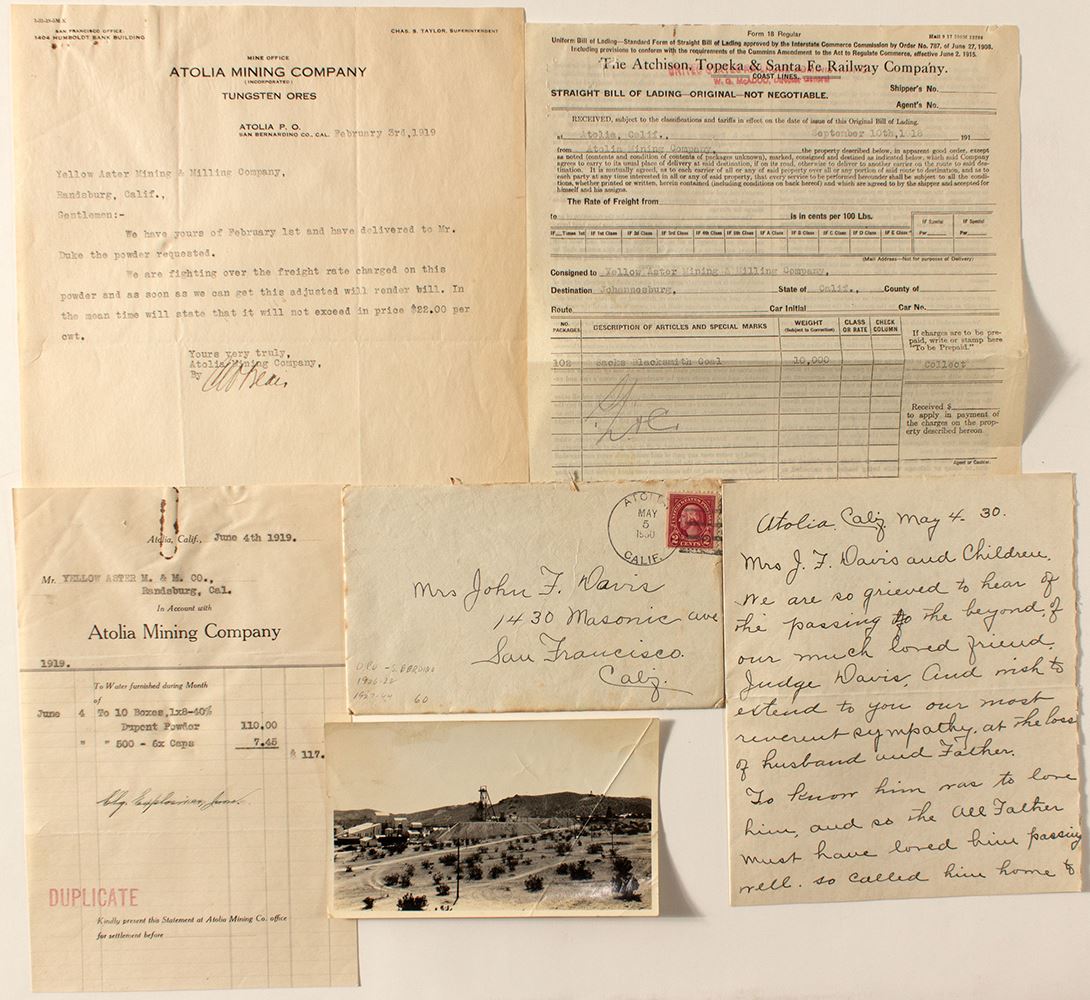 SAN FRANCISCO OFFICE:
1404 HUMBOLDT BANK BUILDING
CHAS. S. TAYLOR, SUPERINTENDENT
MINE OFFICE
ATOLIA MINING COMPANY
(INCORPORATED)
TUNGSTEN ORES
ATOLIA P. O.
SAN BERNARDINO CO., CAL. February 3rd,1919
Yellow Aster Mining & Milling Company,
Randsburg, Calif.,
Gentlemen:-
We have yours of February 1st and have delivered to Mr.
Duke the powder requested.
We are fighting over the freight rate charged on this
powder and as soon as we can get this adjusted will render bill. In
the mean time will state that it will not exceed in price $22.00 per
cwt.
Yours very truly,
Atolia Mining Company,
By
Form 18 Regular
Uniform Bill of Lading—Standard Form of Straight Bill of Lading approved by the Interstate Commerce Commission by Order No. 787, of June 27, 1908.
Including provisions to conform with the requirements of the Cummins Amendment to the Act to Regulate Commerce, effective June 2, 1915.
The Atchison, Topeka & Santa Fe Railway Company.
COAST LINES
W. G. McADOO, Director General
STRAIGHT BILL OF LADING—ORIGINAL—NOT NEGOTIABLE.
Shipper's No.
Agent's No.
RECEIVED, subject to the classifications and tariffs in effect on the date of issue of this Original Bill of Lading.
at Atolia, Calif., September 10th,1918 191
from Atolia Mining Company, the property described below, in apparent good order, except
as noted (contents and condition of contents of packages unknown), marked, consigned and destined as indicated below, which said Company
agrees to carry to its usual place of delivery at said destination, if on its road, otherwise to deliver to another carrier on the route to said des-
tination. It is mutually agreed, as to each carrier of all or any of said property over all or any portion of said route to destination, and as to
each party at any time interested in all or any of said property, that every service to be performed hereunder shall be subject to all the condi-
tions, whether printed or written, herein contained (including conditions on back hereof) and which are agreed to by the shipper and accepted for
himself and his assigns.
The Rate of Freight from
to is in cents per 100 Lbs.
If Times 1st If 1st Class If 2d Class If 3rd Class If 4th Class If 5th Class If A Class If B Class If C Class If D Class If E Class If Special Per If Special Per
(Mail Address—Not for purposes of Delivery)
Consigned to Yellow Aster Mining & Milling Company,
Destination Johannesburg, State of Calif., County of
Route Car Initial Car No.
NO. PACKAGES DESCRIPTION OF ARTICLES AND SPECIAL MARKS WEIGHT (Subject to Correction) CLASS OR RATE CHECK COLUMN
If charges are to be pre-
paid, write or stamp here
"To be Prepaid."
102 Sacks Blacksmith Coal 10,000 Collect
Received $
to apply in payment of
the charges on the prop-
erty described hereon
Agent or Cashier.
Atolia, Calif., June 4th 1919.
Mr. YELLOW ASTER M. & M. CO.,
Randsburg, Cal.
In Account with
Atolia Mining Company
1919.
To Water furnished during Month
of
June 4 To 10 Boxes,1x8-40%
Dupont Powder 110.00
" " 500 - 6x Caps 7.45
$ 117.
DUPLICATE
Kindly present this Statement at Atolia Mining Co. office
for settlement before
ATOLIA
MAY
5
1930
CALIF.
UNITED STATES POSTAGE
2 CENTS 2
Mrs John F. Davis
1430 Masonic ave
San Francisco.
Calif.
60
Atolia, Calif. May 4- 30.
Mrs J. F. Davis and Children.
We are so grieved to hear of
the passing to the beyond, of
our much loved friend,
Judge Davis. And wish to
extend to you our most
reverent sympathy. at the loss
of husband and Father.
To know him was to love
him, and so the All Father
must have loved him passing
well. so called him home to